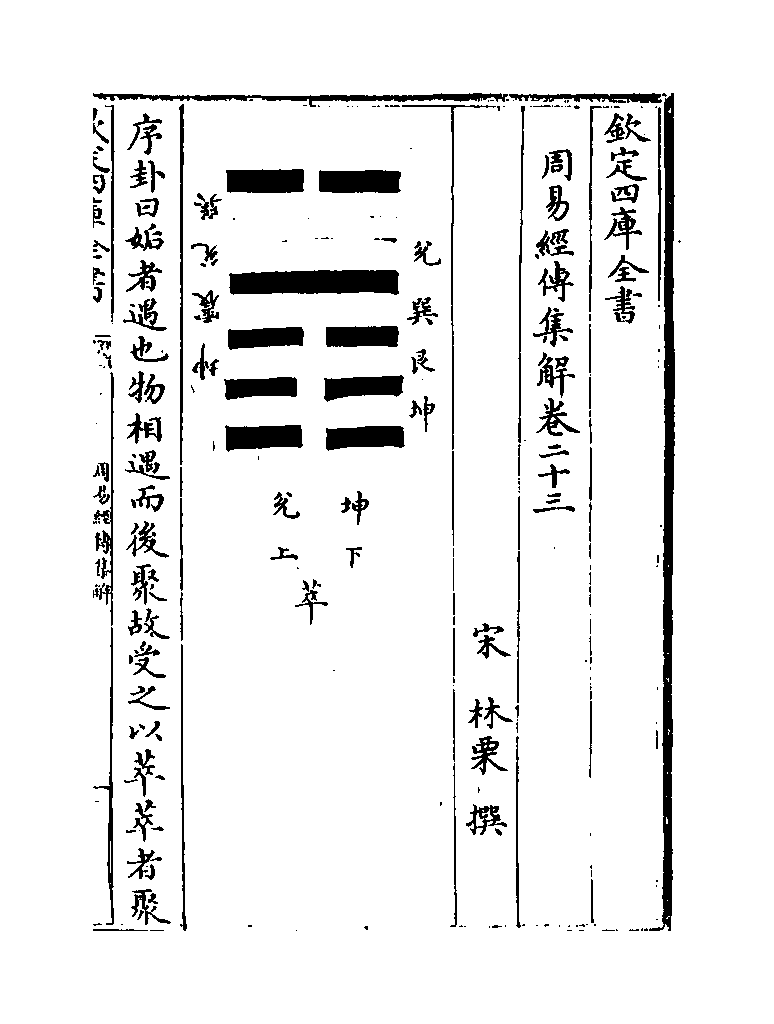 欽定四庫全書
周易經傳集解卷二十三
宋 林栗 撰
兊巽艮坤
坤下
兊上
萃
巽兊震坤
序卦曰姤者遇也物相遇而後聚故受之以萃萃者聚
欽定四庫全書
周易經傳集解